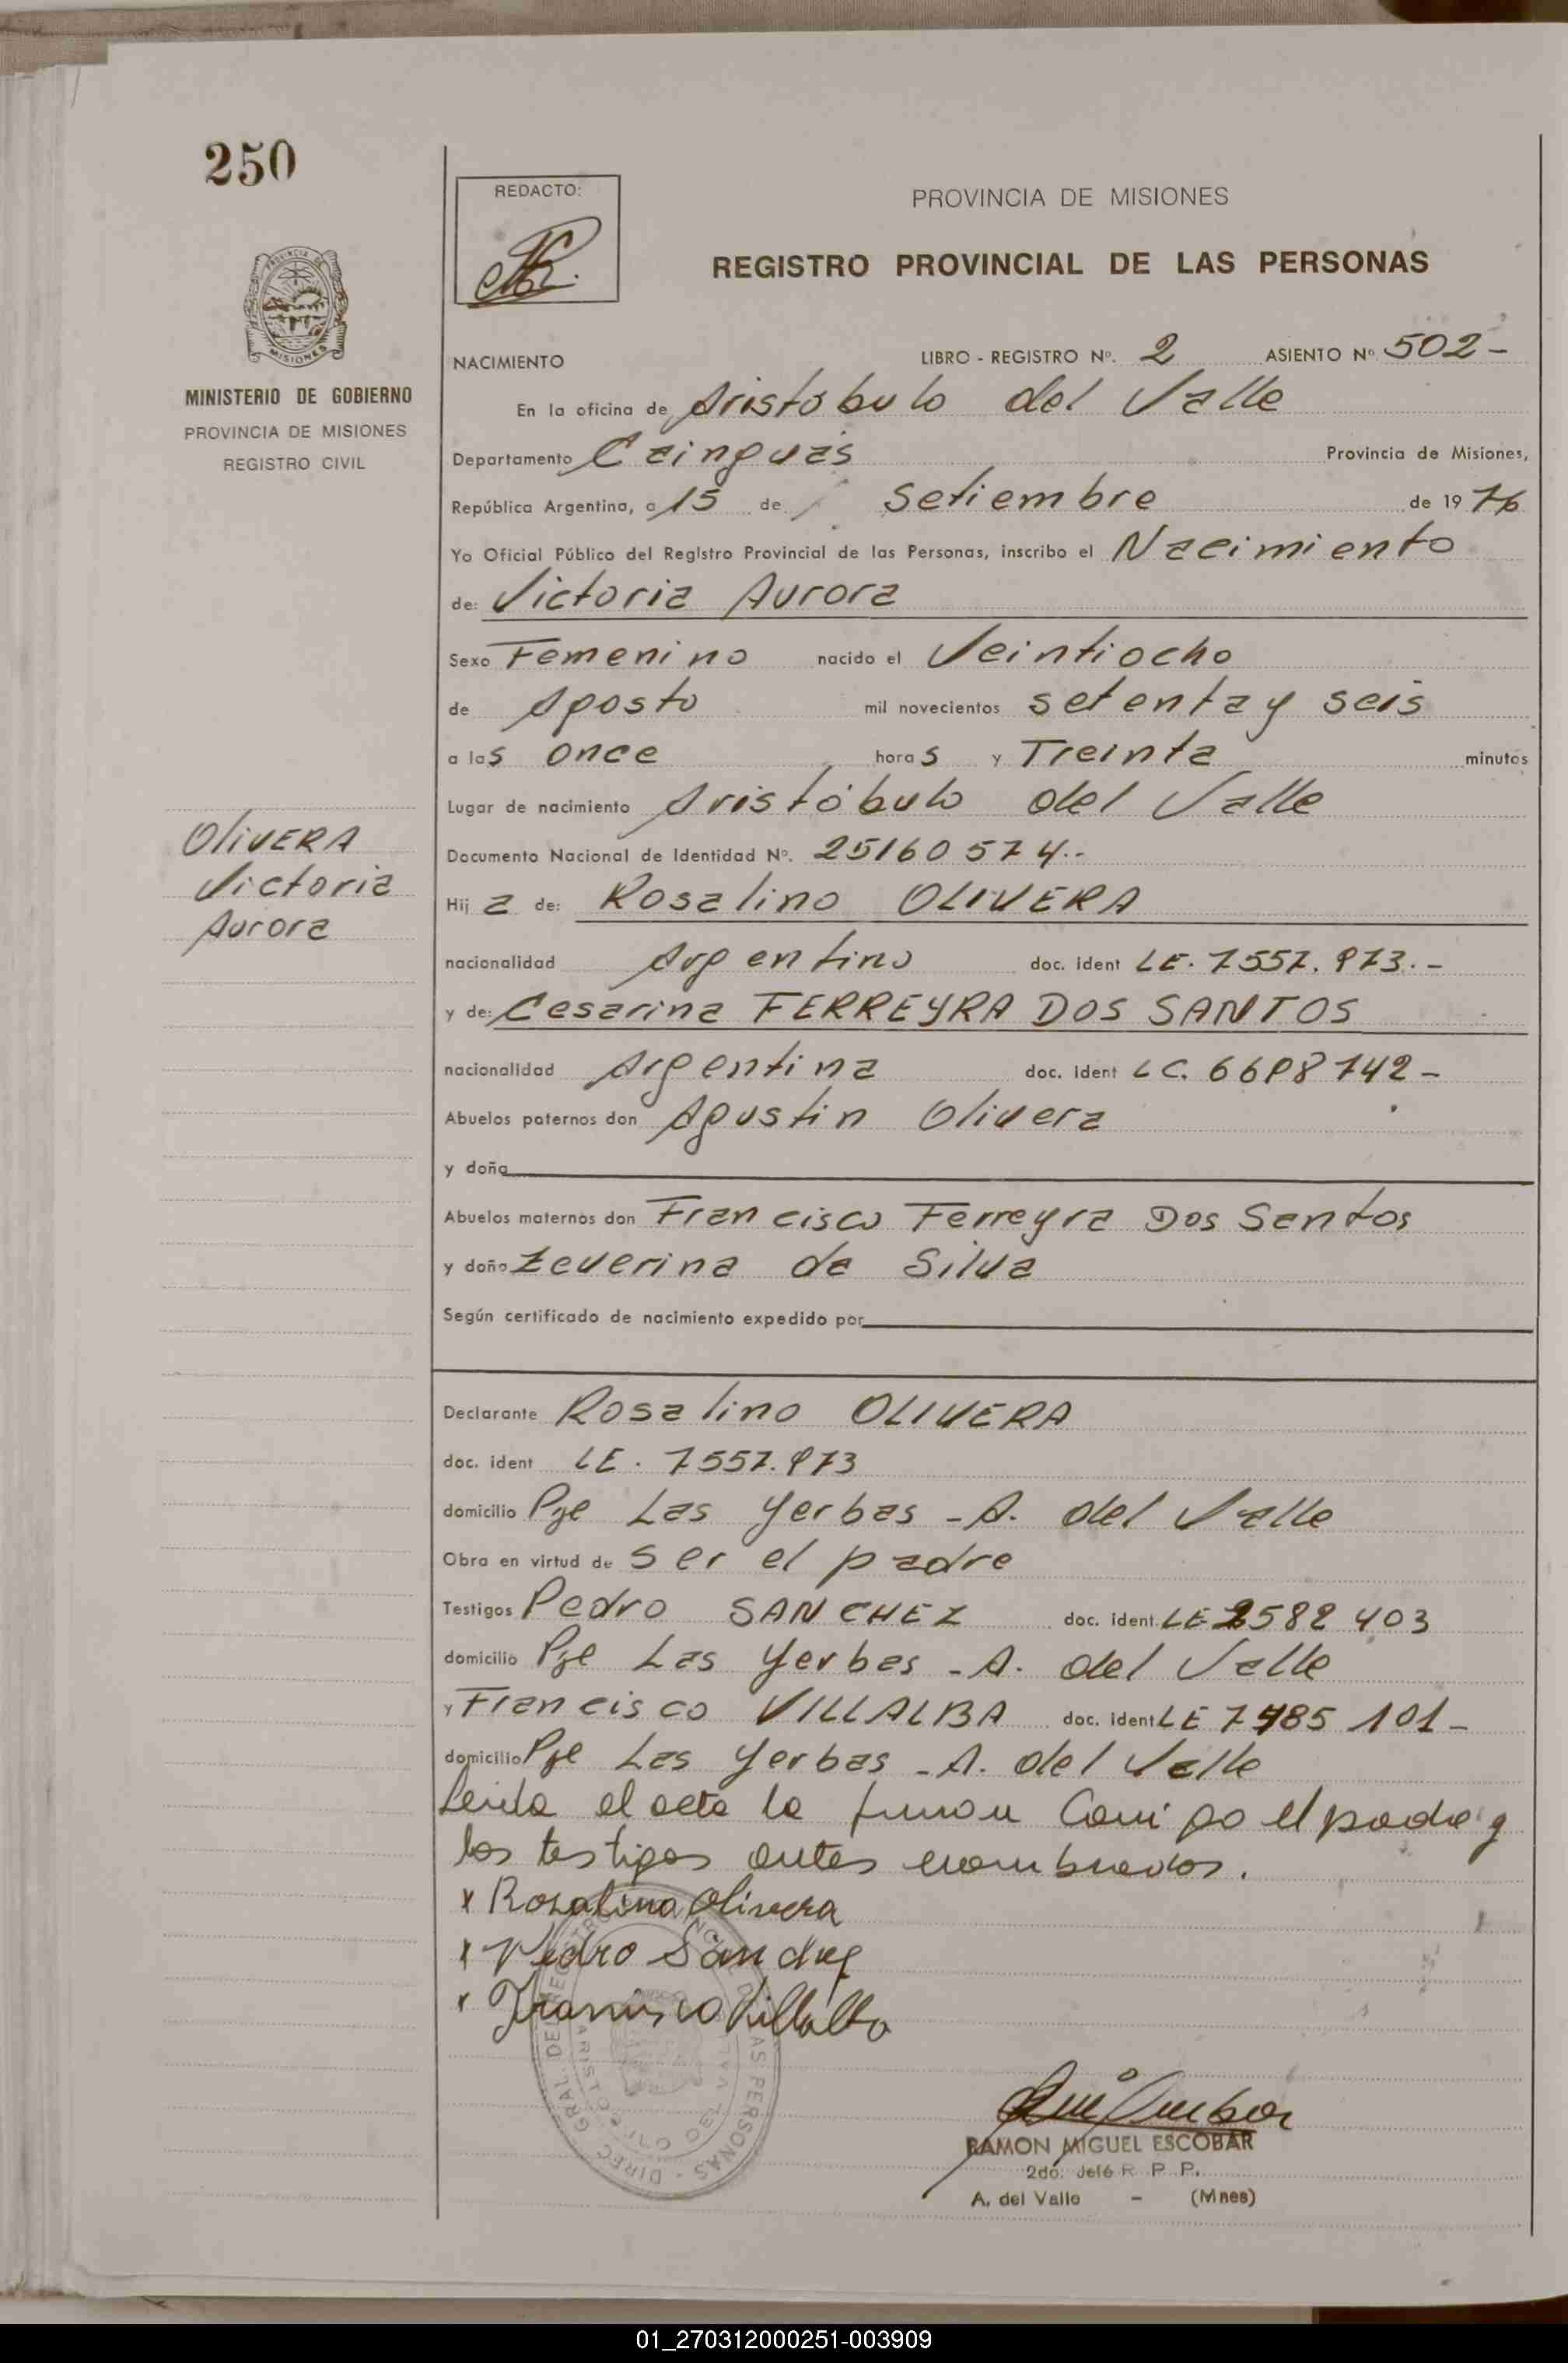 250
REDACTO:
PROVINCIA DE MISIONES
REGISTRO PROVINCIAL DE LAS PERSONAS
PROVINCIA DE
MISIONES
MINISTERIO DE GOBIERNO
PROVINCIA DE MISIONES
REGISTRO CIVIL
NACIMIENTO LIBRO - REGISTRO Nº. 2 ASIENTO Nº. 502 -
En la oficina de Aristóbulo del Valle
Departamento Cainguás Provincia de Misiones,
República Argentina, a 15 de Setiembre de 1976
Yo Oficial Público del Registro Provincial de las Personas, inscribo el Nacimiento
de: Victoria Aurora
Sexo Femenino nacido el Veintiocho
de Agosto mil novecientos setenta y seis
a las once horas y Treinta minutos
Lugar de nacimiento Aristóbulo del Valle
OLIVERA
Victoria
Aurora
Documento Nacional de Identidad Nº. 25160574.-
Hija de: Rosalino OLIVERA
nacionalidad Argentino doc. ident LE. 7557.973.-
y de: Cesarina FERREYRA DOS SANTOS
nacionalidad Argentina doc. ident LC.
Abuelos paternos don Agustin Olivera
y doña
Abuelos maternos don Francisco Ferreyra Dos Santos
y doña Zeverina da Silva
Según certificado de nacimiento expedido por
Declarante Rosalino OLIVERA
doc. ident LE. 7557.973
domicilio Pje Las Yerbas - A. del Valle
Obra en virtud de ser el padre
Testigos Pedro SANCHEZ doc. ident. LE
domicilio Pje Las Yerbas - A. del Valle
y Francisco VILLALBA doc. ident LE
domicilio Pje Las Yerbas - A. del Valle
Leida el acta la firman Conmigo el padre y
los testigos antes nombrados.
x Rosalino Olivera
x Pedro Sanchez
x Francisco Villalba
DIREC. GRAL. DEL REGISTRO PROVINCIAL DE LAS PERSONAS
ARISTOBULO DEL VALLE
RAMON MIGUEL ESCOBAR
2do. Jefe R. P. P.
A. del Valle - (Mnes)
01_270312000251-003909